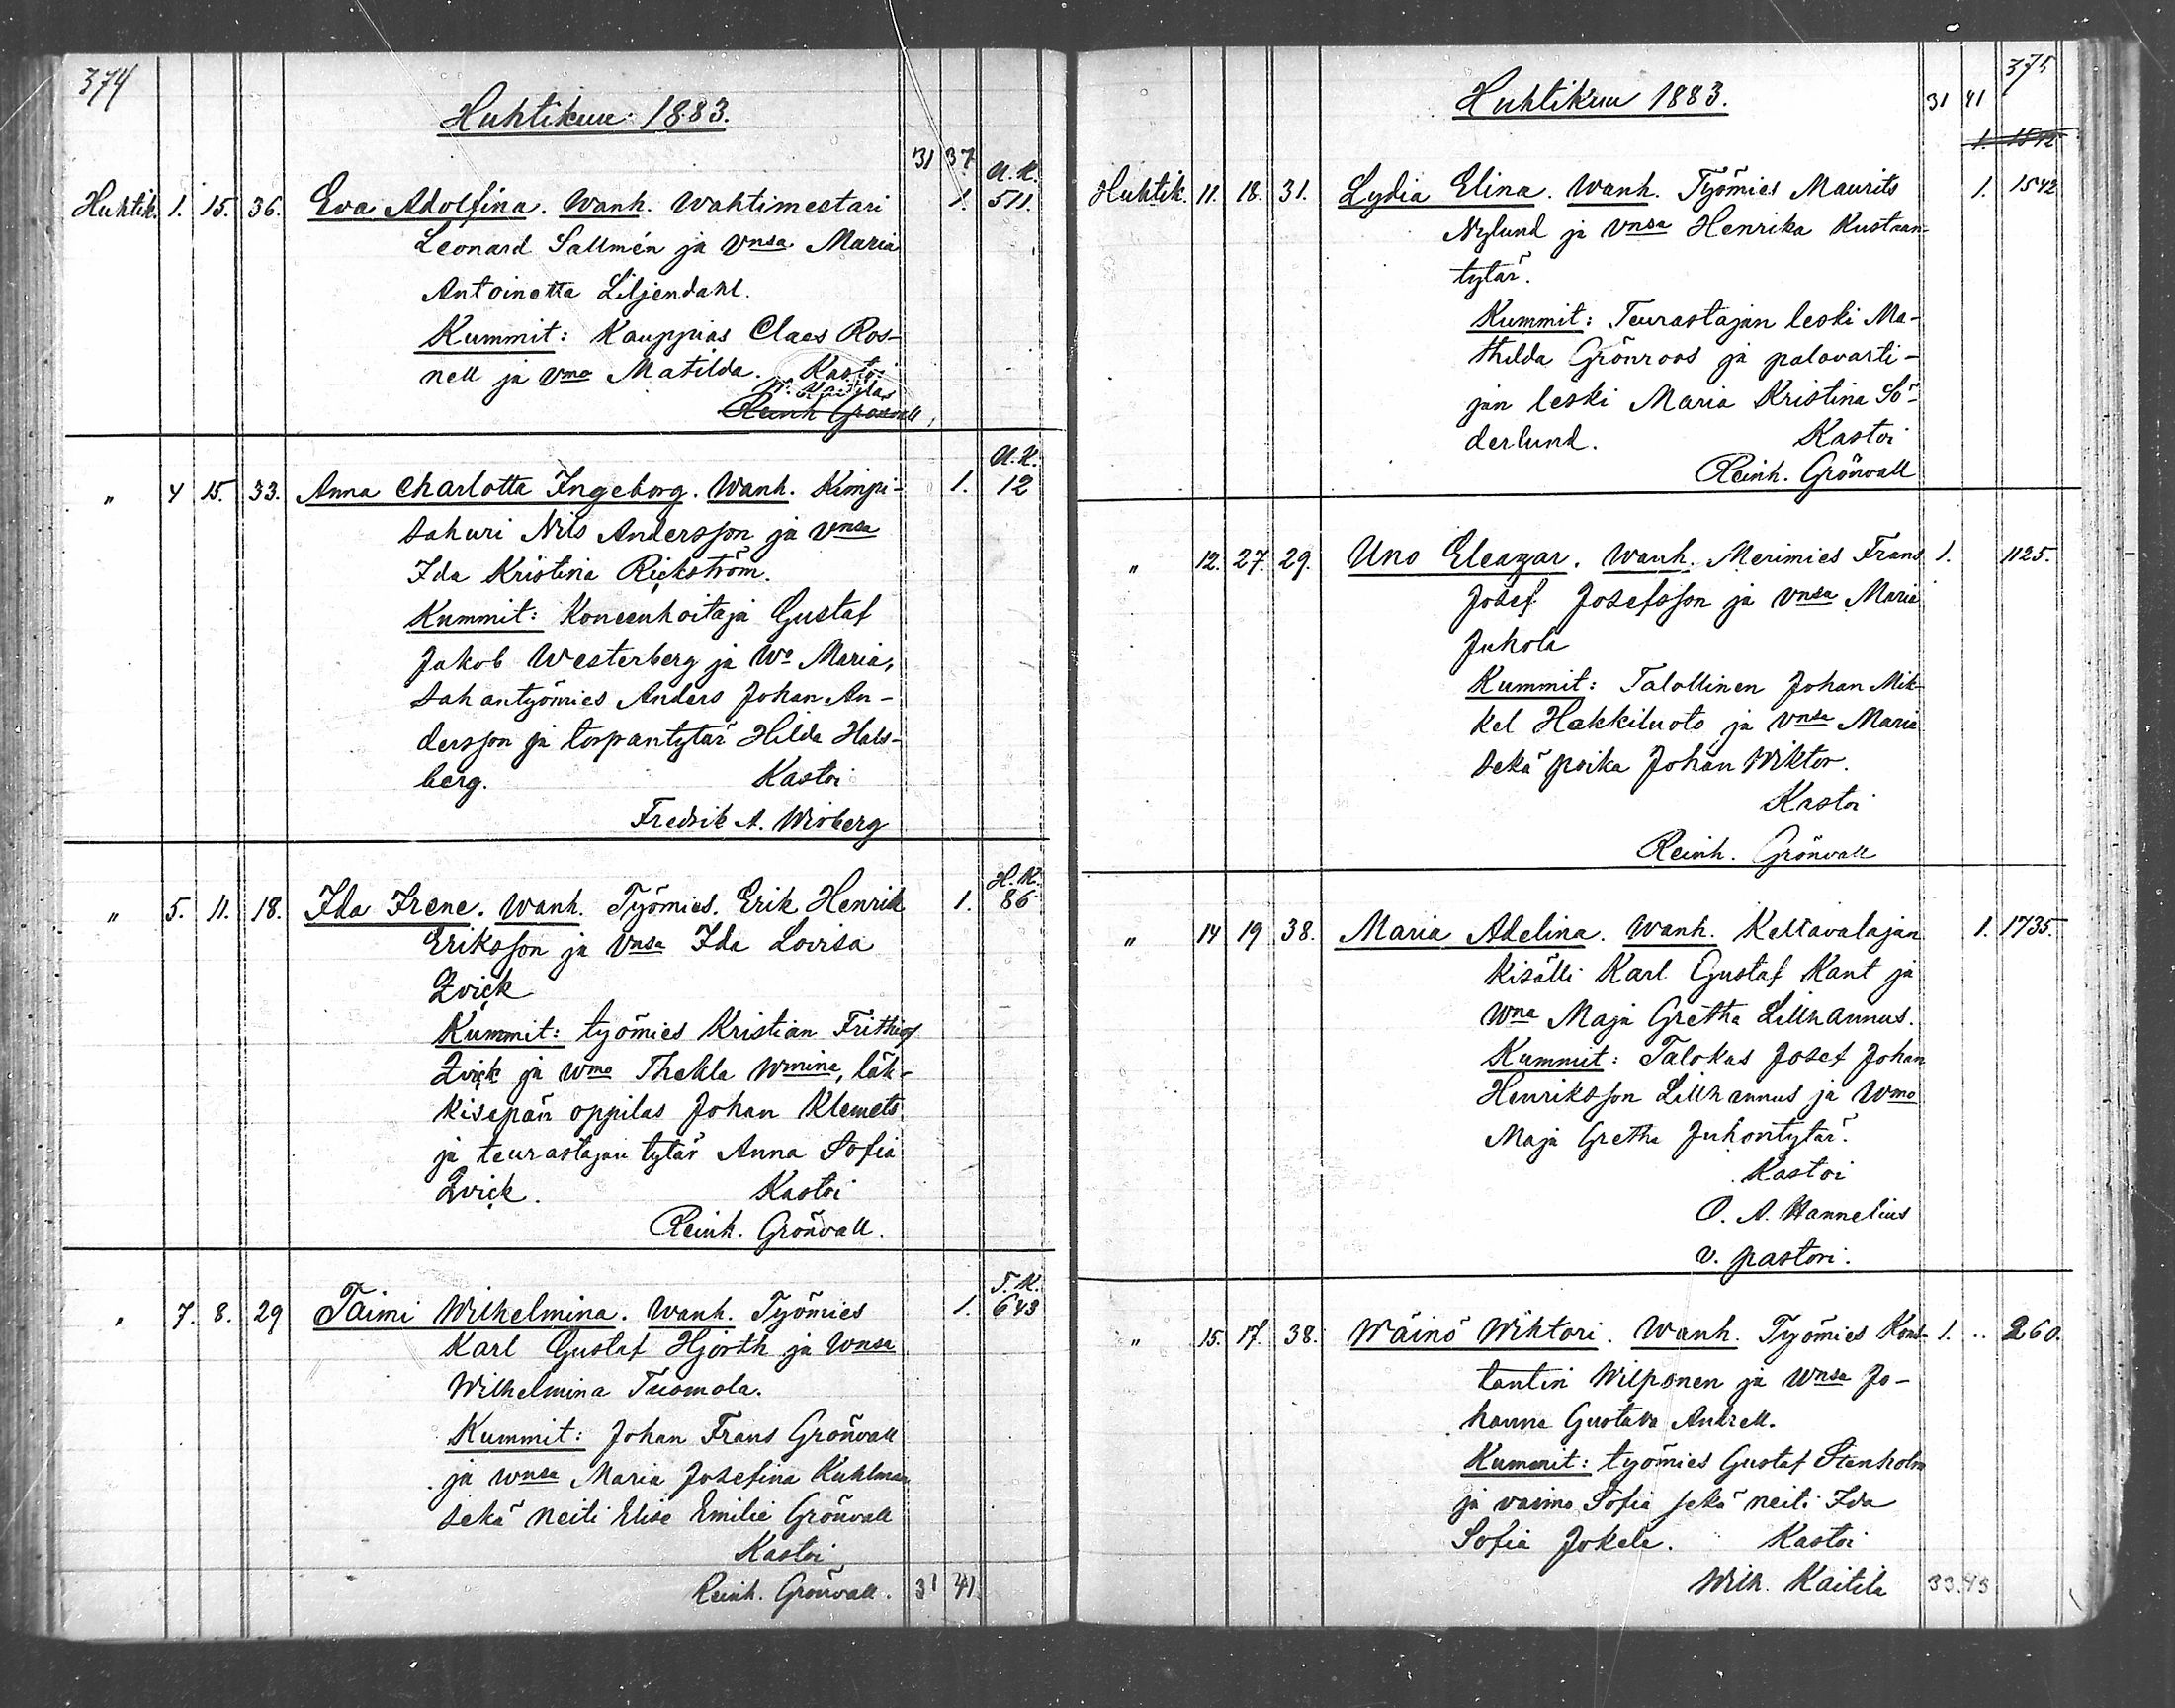 374
Huhtikuu 1883.
31 37
U.K.
Huhtik. 1. 15. 36. Eva Adolfina. Wanh. Wahtimestari 1. 511.
Leonard Sallmén ja vnsa Maria
Antoinetta Liljendahl.
Kummit: Kauppias Claes Ros-
nell ja vmo Matilda. Kastoi
W. Kaitila
Reinh Grönvall
U.K.
" 4 15. 33. Anna Charlotta Ingeborg. Wanh. Kimpi- 1. 12
sahuri Nils Andersson ja vnsa
Ida Kristina Rickström.
Kummit: Koneenhoitaja Gustaf
Jakob Westerberg ja Wo Maria,
sahantyömies Anders Johan An-
dersson ja torpantytär Hilda Hals-
berg. Kastoi
Fredrik A. Wirberg
H.K.
" 5. 11. 18. Ida Irene. Wanh. Työmies. Erik Henrik 1. 86
Eriksson ja vnsa Ida Lovisa
Zvick
Kummit: työmies Kristian Frithiof
Zvick ja wmo Thekla Wmina, läk-
kisepän oppilas Johan Klemets
ja teurastajan tytär Anna Sofia
Zvick. Kastoi
Reinh. Grönvall.
T.K.
" 7. 8. 29 Taimi Wilhelmina. Wanh. Työmies 1. 643
Karl Gustaf Hjorth ja wnsa
Wilhelmina Tuomola.
Kummit: Johan Frans Grönvall
ja wnsa Maria Josefina Kuhlman
sekä neiti Elise Emilie Grönvall
Kastoi
Reinh. Grönvall. 31 41.
375
Huhtikuu 1883. 31 41
1. 1542
Huhtik. 11. 18. 31. Lydia Elina. Wanh. Työmies Maurits 1. 1542
Nylund ja vnsa Henrika Kustaan-
tytär.
Kummit: Teurastajan leski Ma-
thilda Grönroos ja palovarti-
jan leski Maria Kristina Sö-
derlund. Kastoi
Reinh. Grönvall
" 12. 27. 29. Uno Eleazar. Wanh. Merimies Frans 1. 1125.
Josef Josefsson ja vnsa Maria
Juhola
Kummit: Talollinen Johan Mik-
kel Hakkiluoto ja vnsa Maria
sekä poika Johan Wiktor.
Kastoi
Reinh. Grönvall
" 14 19 38. Maria Adelina. Wanh. Keltavalajan 1. 1735.
kisälli Karl Gustaf Kant ja
Wna Maja Gretha Lillhannus.
Kummit: Talokas Josef Johan
Henriksson Lillhannus ja Wmo
Maja Gretha Juhontytär.
Kastoi
O. A. Hannelius
v. pastori.
" 15. 17. 38. Wäinö Wihtori. Wanh. Työmies Kons- 1. .. 260.
tantin Wilponen ja Wnsa Jo-
hanna Gustava Andrell.
Kummit: työmies Gustaf Stenholm
ja vaimo Sofia sekä neiti Ida
Sofia Jokela. Kastoi
Wilh. Kaitila 33. 43